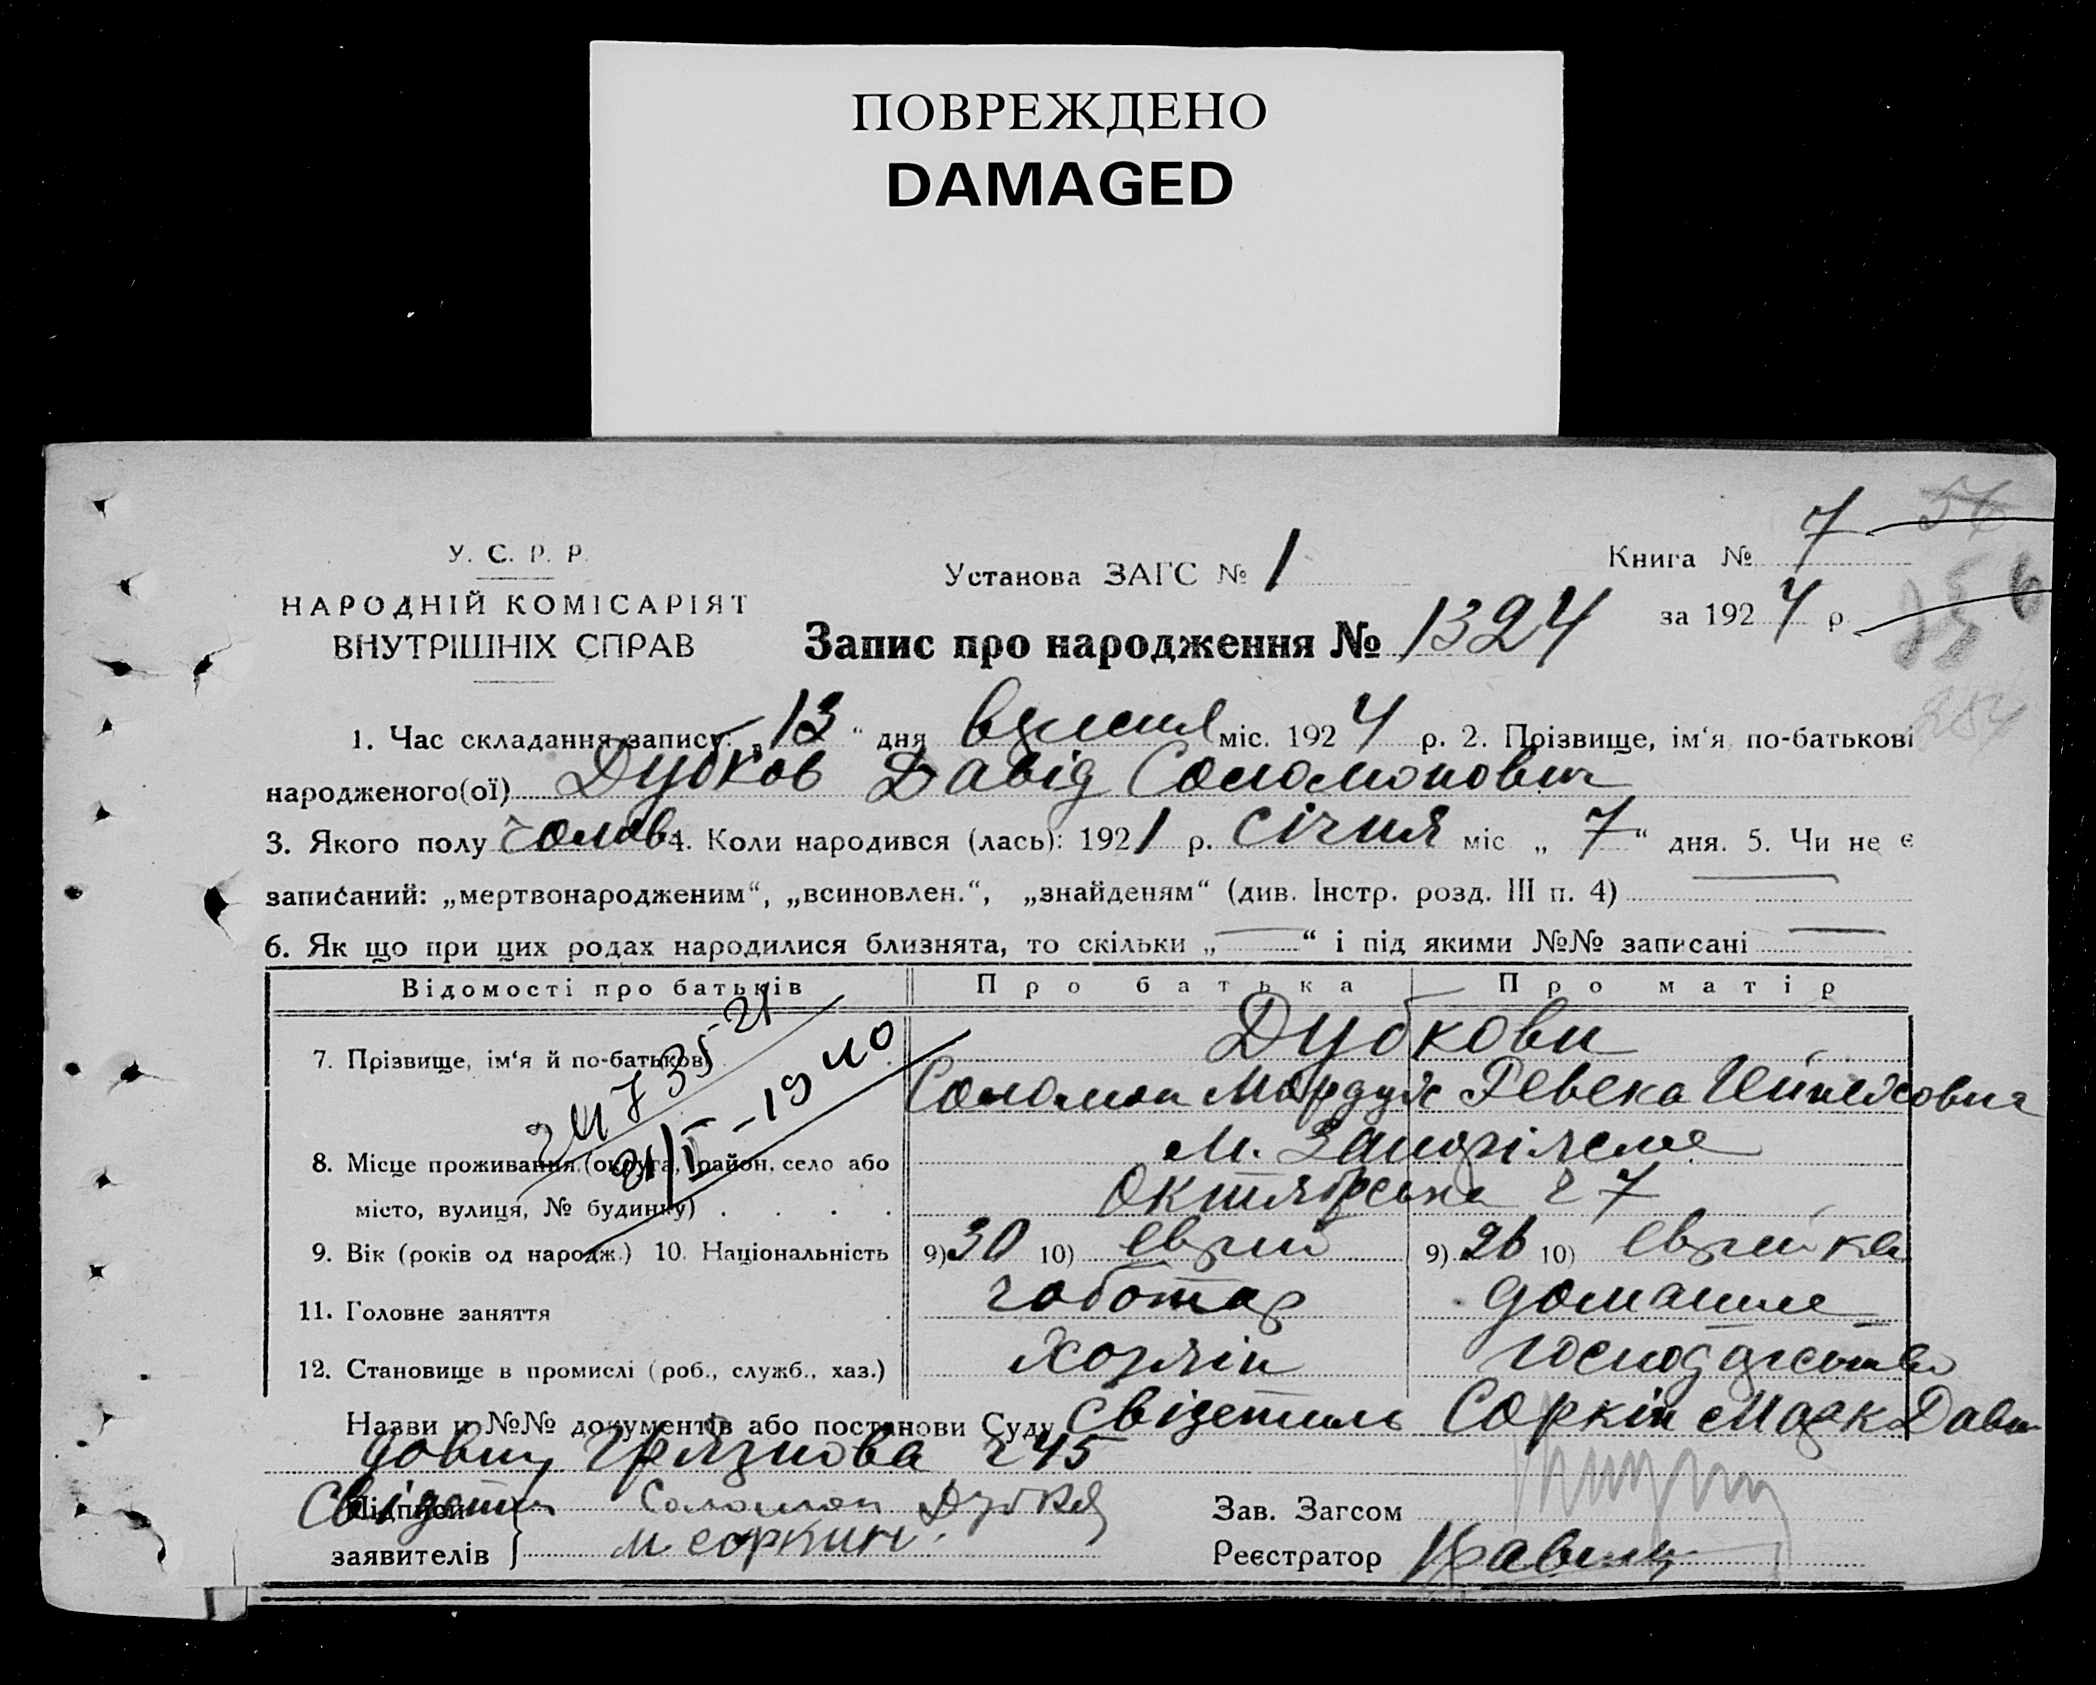 ПОВРЕЖДЕНО
DAMAGED
7 56
У. С. Р. Р.
НАРОДНІЙ КОМІСАРІЯТ
ВНУТРІШНІХ СПРАВ
Установа ЗАГС № 1
Книга № 7
за 1924 р.
Запис про народження № 1324
1. Час складання запису: „13“ дня вересня міс. 1924 р. 2. Прізвище, ім‘я, по-батькові
народженого(ої) Дубков Давід Соломонович
3. Якого полу чолов. 4. Коли народився (лась): 1921 р. січня міс „7“ дня. 5. Чи не є
записаний: „мертвонародженим“, „всиновлен.“, „знайденям“ (див. Інстр. розд. III п. 4)
6. Як що при цих родах народилися близнята, то скільки „—“ і під якими №№ записані —
Відомості про батьків Про батька Про матір
7. Прізвище, ім‘я й по-батькові Дубкови
Соломон Мордух Ревека
8. Місце проживання (округа, район, село або
місто, вулиця, № будинку) Октябрська 7
9. Вік (років од народж.) 10. Національність 9) 30 10) еврей 9) 26 10) еврейка
11. Головне заняття чоботар домашнє
12. Становище в промислі (роб., служб., хаз.) хозяїн господарство
Назви и №№ документів або постанови Суду Свідетиль Соркін Давидович
Грязнова 45
Підписи Соломон Дубков
заявителів М Соркин
Зав. Загсом
Реєстратор Кравець
24735-21
21/II-1940
284